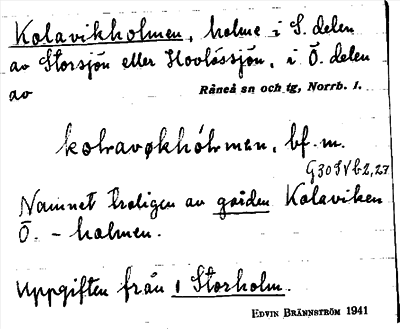 Kolavikholmen, holme i S. delen
av Storsjön eller Hovlössjön, i Ö. delen
av Råneå sn och tg, Norrb. l.
bf. m.
Namnet troligen av gården Kolaviken
Ö. - holmen.
Uppgiften från 1 Storholm.
EDVIN BRÄNNSTRÖM 1941